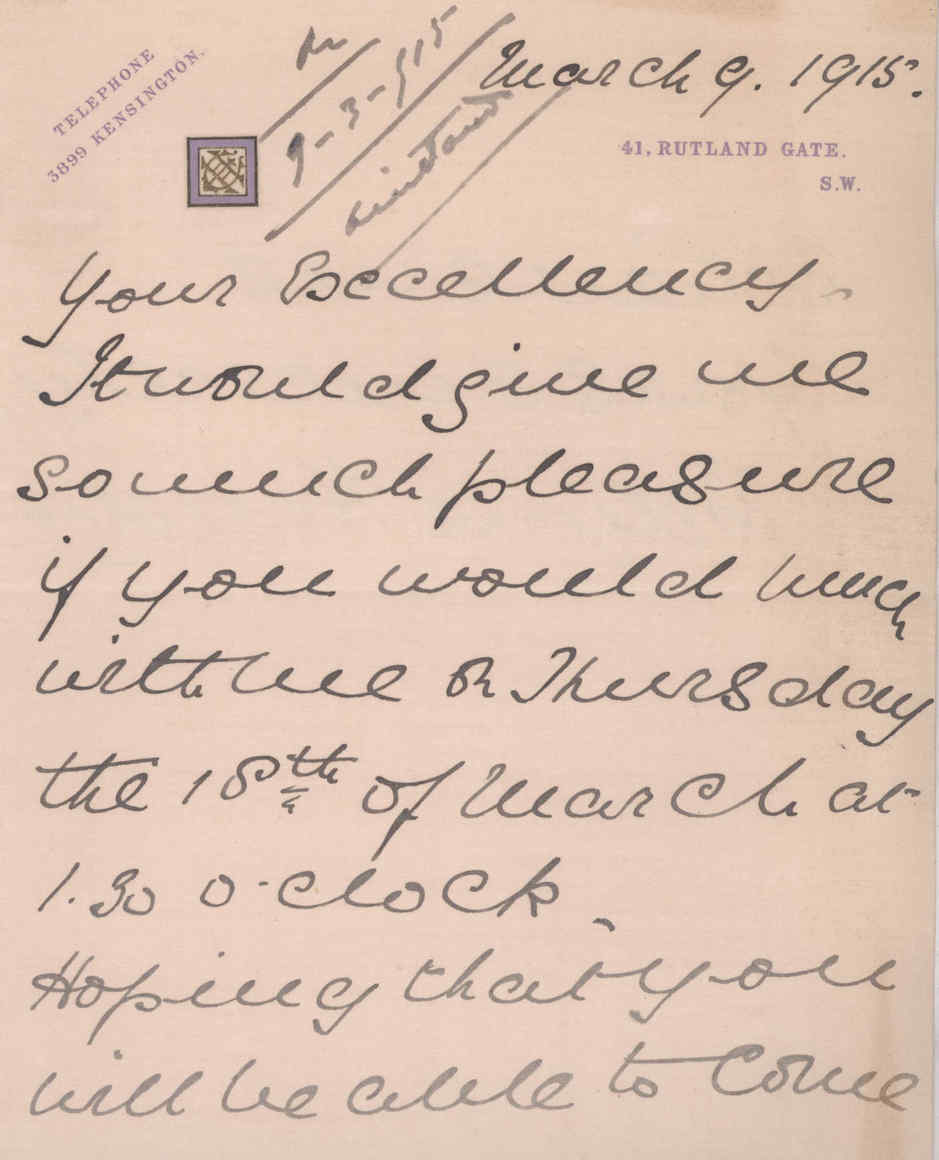 TELEPHONE
3899 KENSINGTON.
9-3-915
March 9. 1915.
41, RUTLAND GATE.
S.W.
Your Excellency
It would give me
so much pleasure
if you would lunch
with me on Thursday
the 18th of March at
1.30 o'clock.
Hoping that you
will be able to come